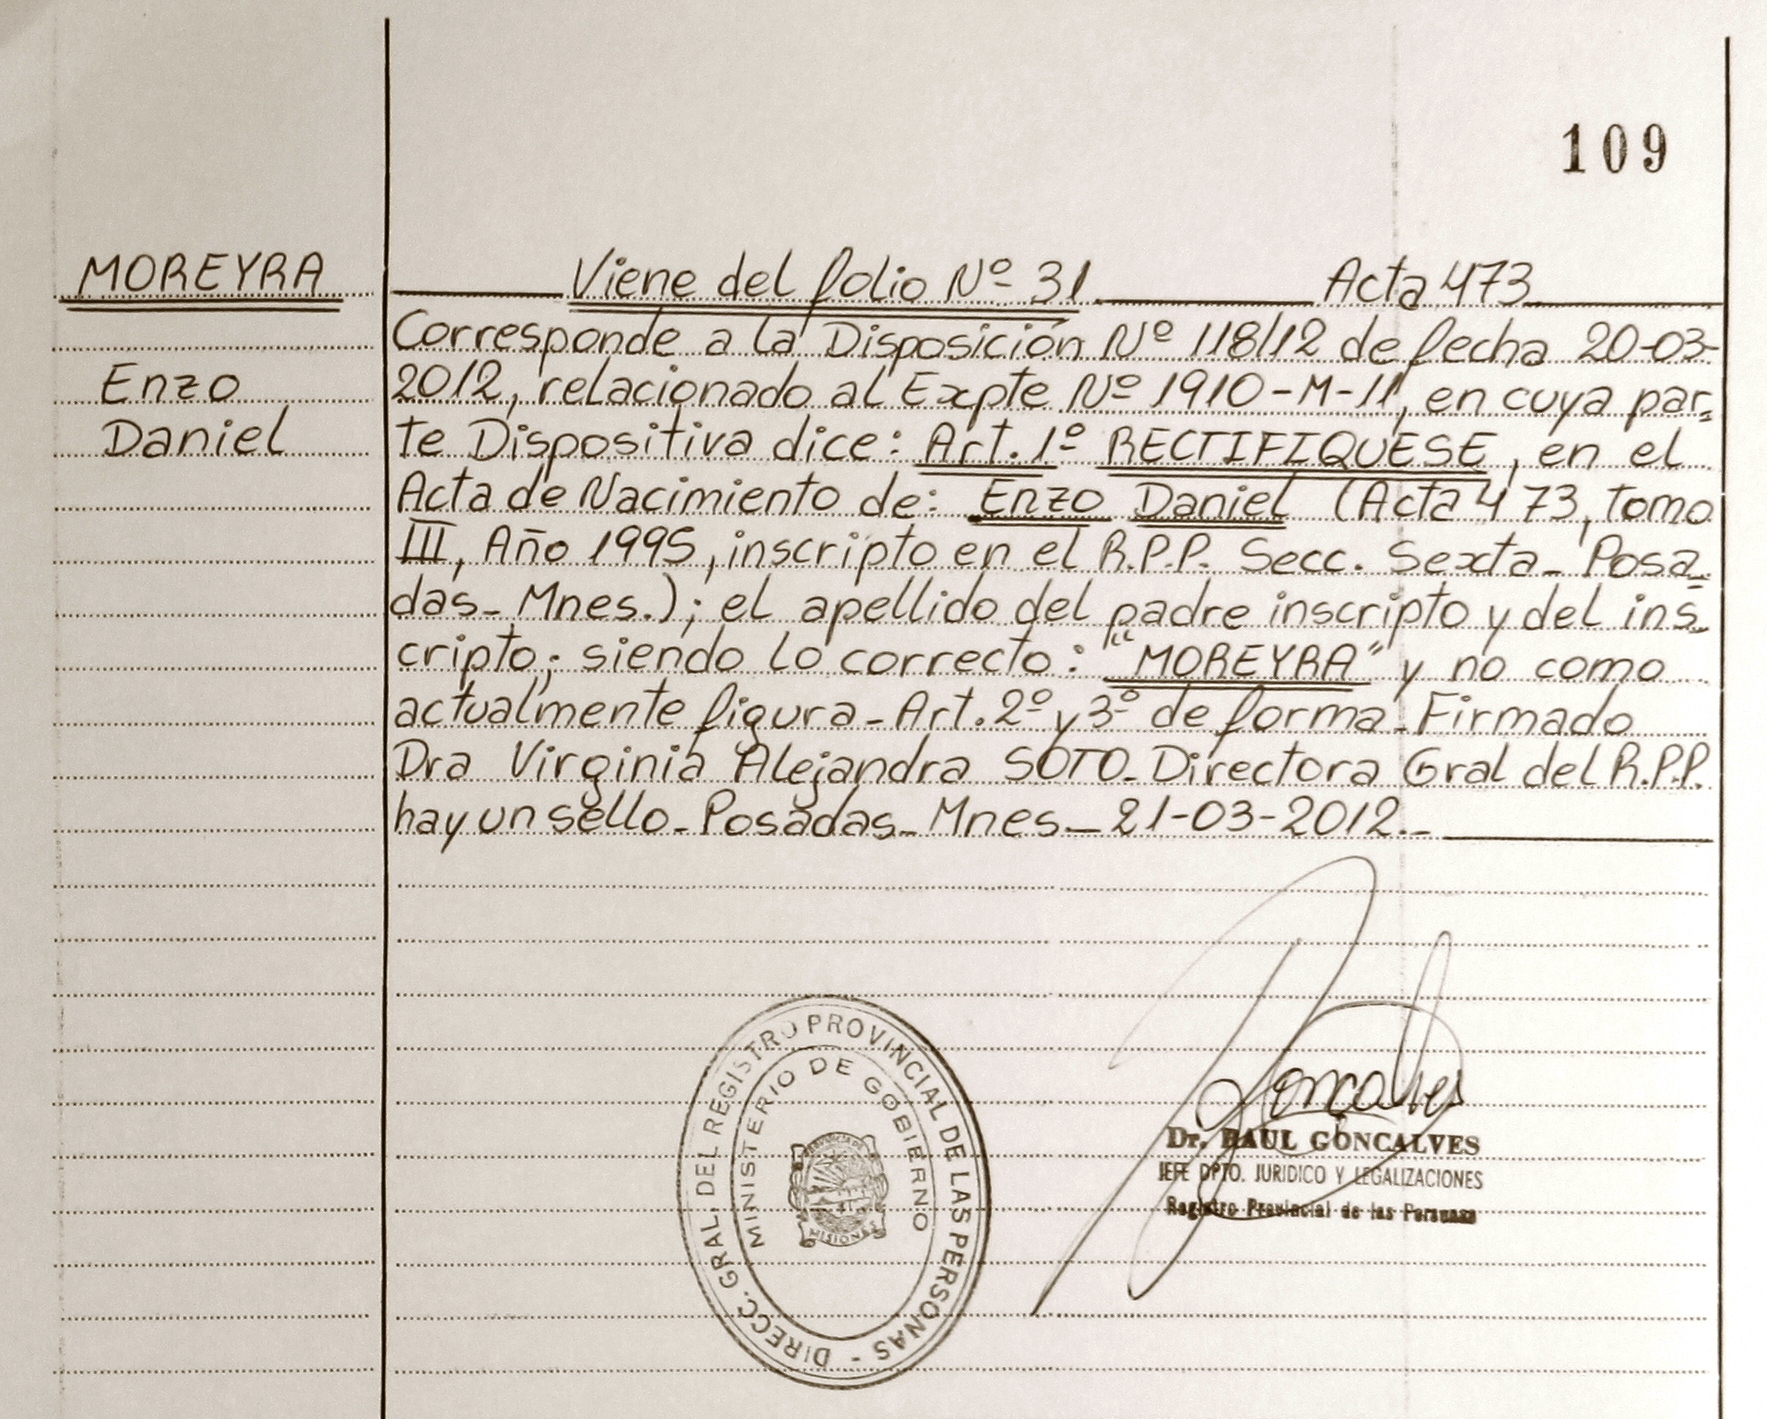 109
MOREYRA
Enzo
Daniel
Viene del folio Nº 31 Acta 473
Corresponde a la Disposición Nº 118/12 de fecha 20-03-
2012, relacionado al Expte Nº 1910-M-11, en cuya par=
te Dispositiva dice: Art. 1º RECTIFIQUESE, en el
Acta de Nacimiento de: Enzo Daniel (Acta 473, tomo
III, Año 1995, inscripto en el R.P.P. Secc. Sexta_ Posa=
das_ Mnes.); el apellido del padre inscripto y del ins_
cripto; siendo lo correcto: "MOREYRA" y no como
actualmente figura_ Art. 2º y 3º de forma_ Firmado
Dra Virginia Alejandra SOTO_ Directora Gral del R.P.P.
hay un sello_ Posadas_ Mnes_ 21-03-2012._
DIRECC. GRAL. DEL REGISTRO PROVINCIAL DE LAS PERSONAS -
MINISTERIO DE GOBIERNO
PROVINCIA DE
MISIONES
Goncalves
Dr. RAUL GONCALVES
JEFE DPTO. JURIDICO Y LEGALIZACIONES
Registro Provincial de las Personas